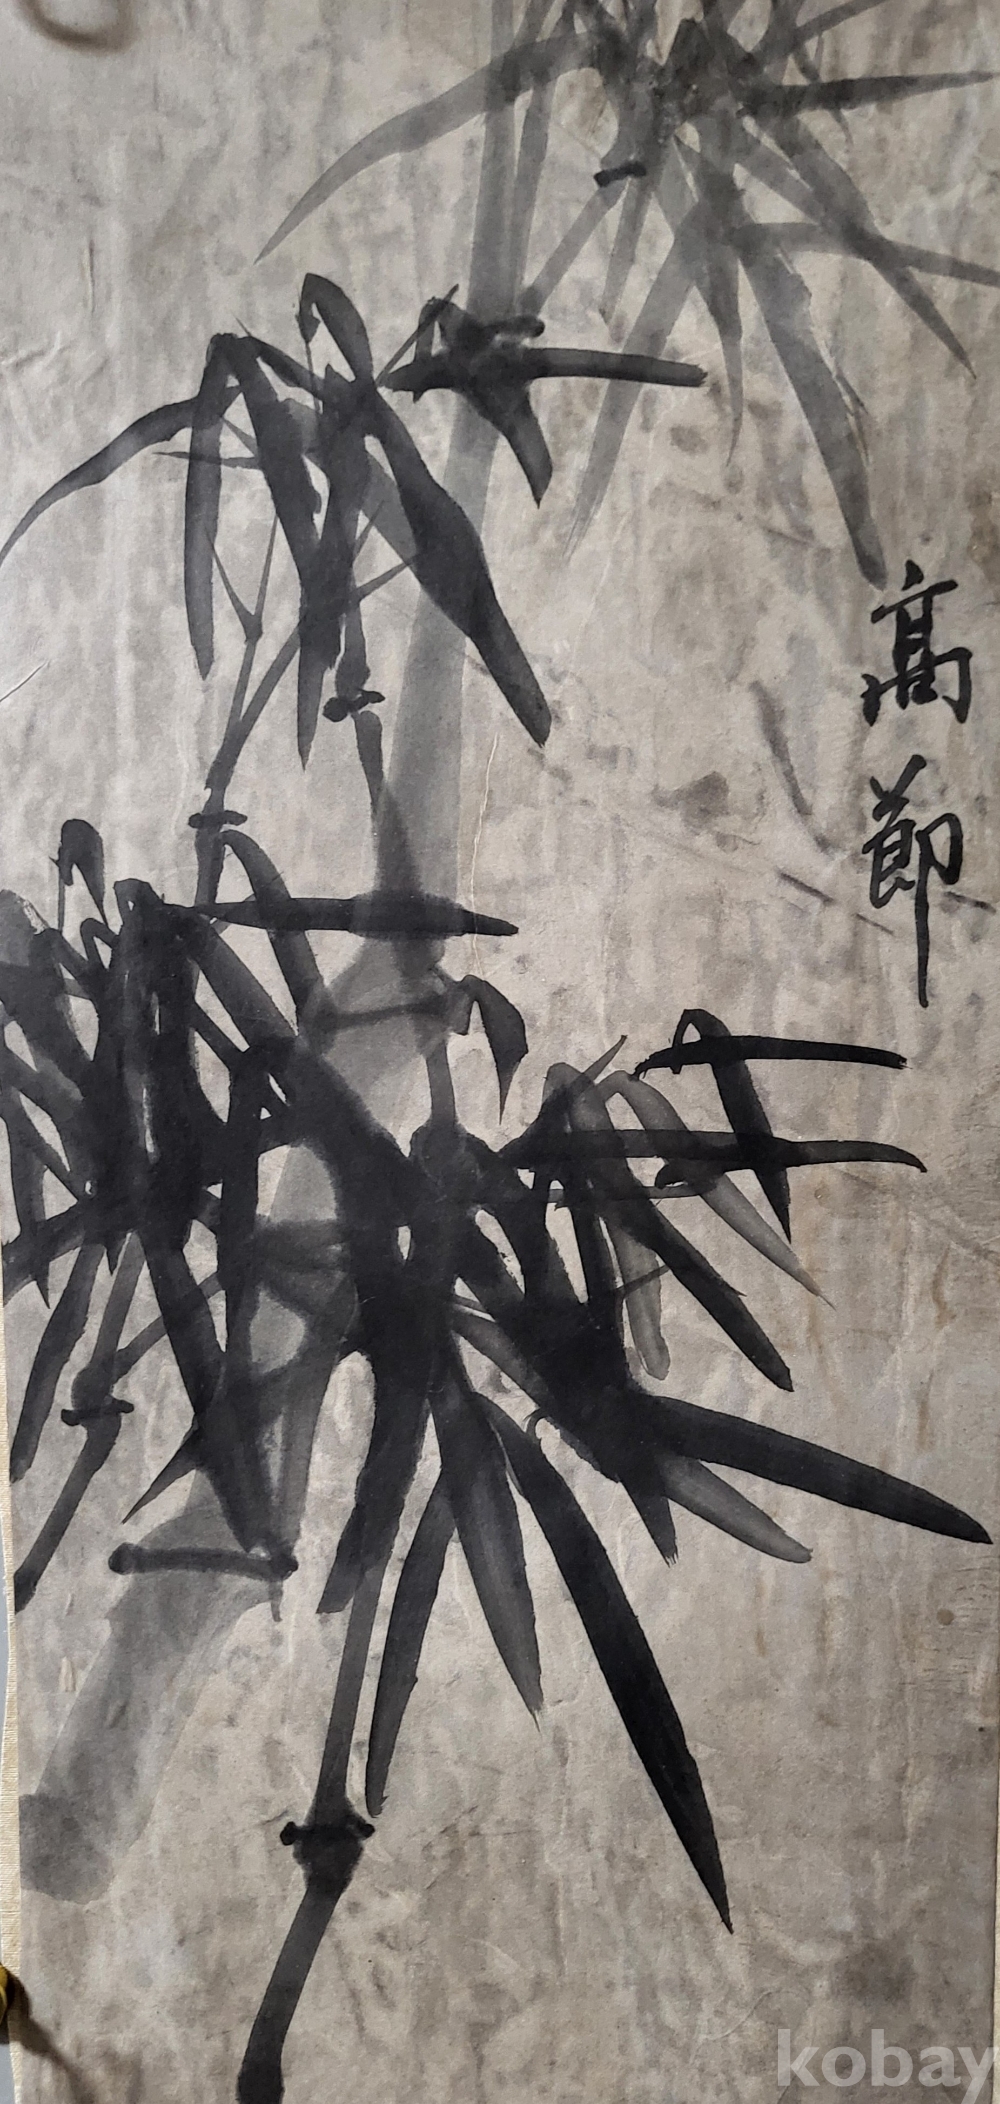 高節
kobay